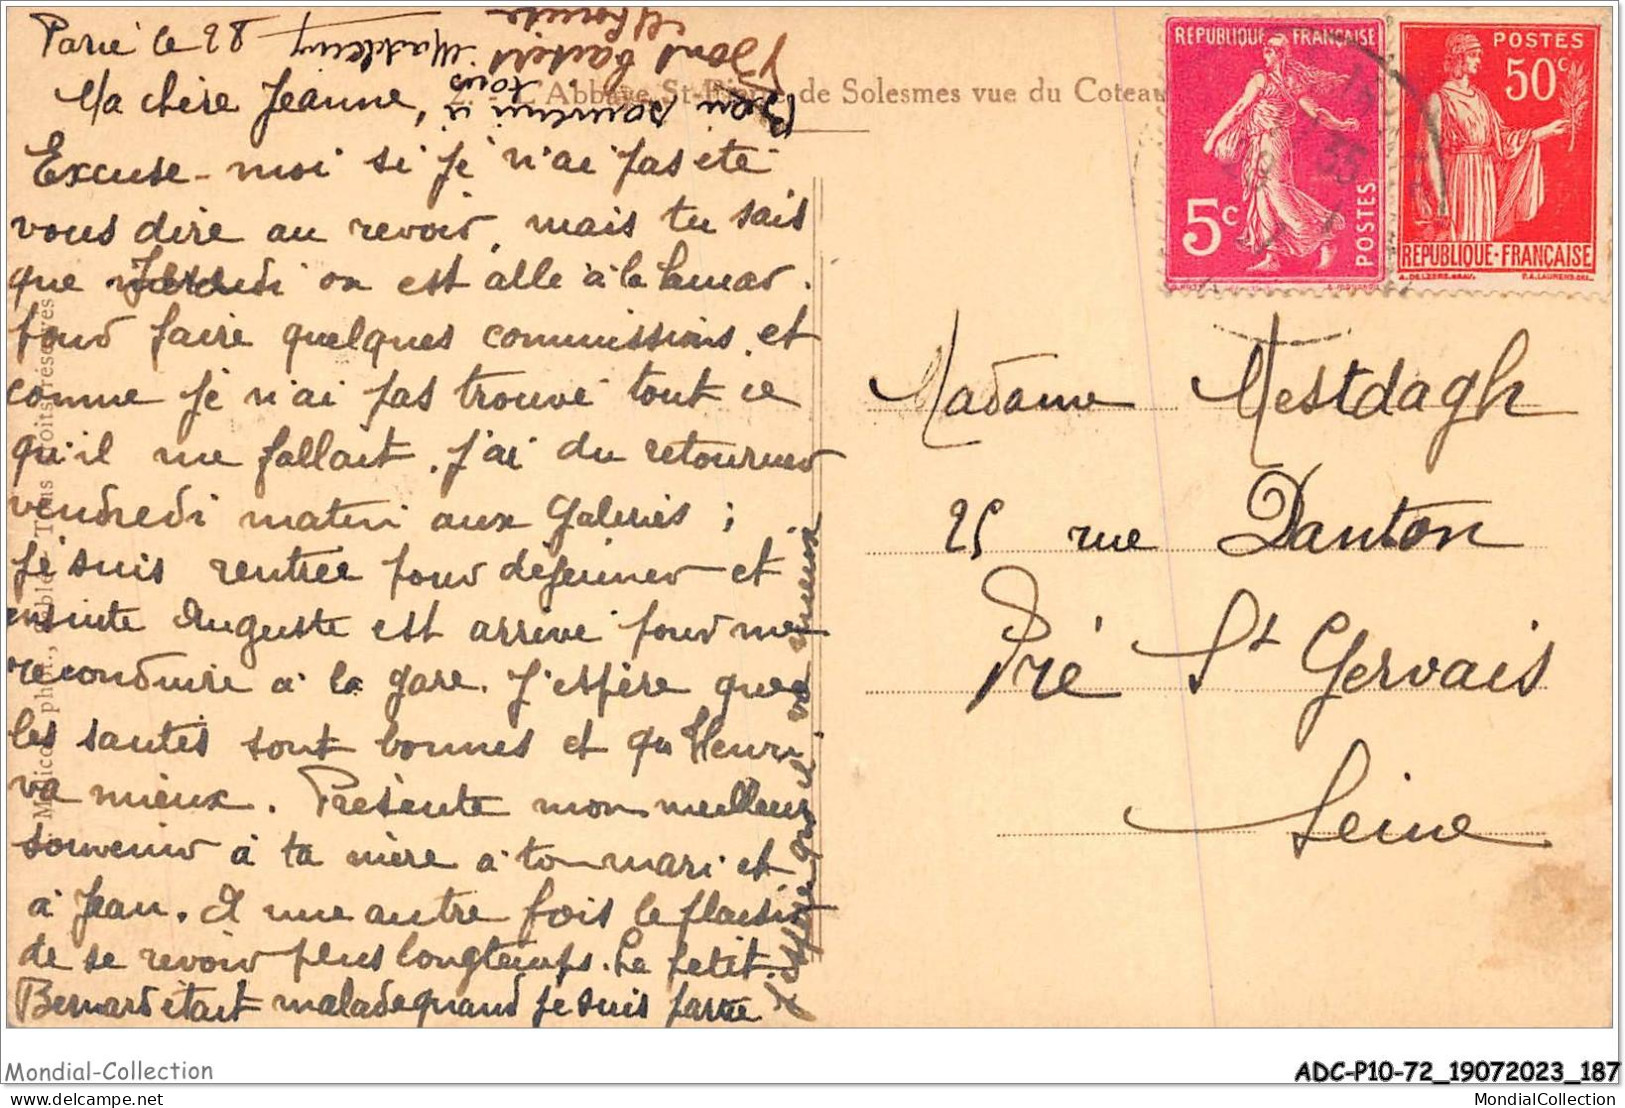 Parié le 28
Ma chère Jeanne,
Excuse-moi si je n'ai pas été
vous dire au revoir, mais tu sais
que on est allé à la
pour faire quelques commissions et
comme je n'ai pas trouvé tout ce
qu'il me fallait. J'ai du retourner
vendredi matin aux Galeries ;
je suis rentrée pour déjeuner et
ensuite Auguste est arrivé pour me
reconduire à la gare. J'espère que
les santés sont bonnes et qu'Henri
va mieux. Présente mon meilleur
souvenir à ta mère à ton mari et
à Jean. A une autre fois le plaisir
de se revoir plus longtemps. Le petit
Bernard était malade quand je suis partie
J'espère qu'il va mieux
Bon souvenir à tous
Bons baisers
Madeleine
L'Abbaye St-Pierre de Solesmes vue du Coteau
REPUBLIQUE FRANÇAISE
5c
POSTES
POSTES
50c
REPUBLIQUE-FRANÇAISE
Madame Mestdagh
25 rue Danton
Pré St Gervais
Seine
Mondial-Collection
ADC-P10-72_19072023_187
delcampe.net
MondialCollection